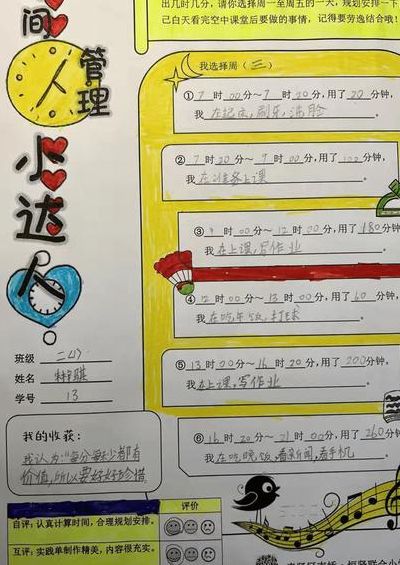 出几时几分，请你选择周一至周五的一天，规划安排一下
己白天看完空中课堂后要做的事情，记得要劳逸结合哦！
间
人
管理
小
达
人
我选择周（三）
①7时00分～7时20分，用了20分钟，
我在起床，刷牙，洗脸。
②7时20分～9时00分，用了100分钟，
我在准备上课。
③9时00分～12时00分，用了180分钟，
我在上课，写作业。
④12时00分～13时00分，用了60分钟，
我在吃午饭，打球。
⑤13时00分～16时20分，用了200分钟，
我在上课，写作业。
⑥16时20分～21时00分，用了260分钟
我在吃晚饭，看新闻，看手机。
班级 二(4)
姓名
学号 13
我的收获：
我认为：每分每秒都有
价值，所以要好好珍惜
评价
自评：认真计算时间，合理规划安排。
互评：实践单制作精美，内容很充实。